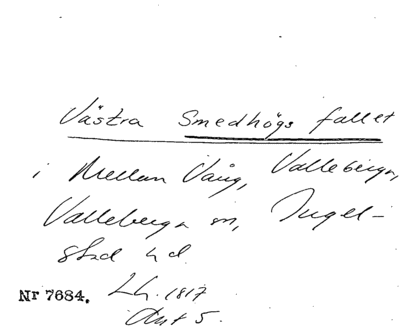 Västra Smedhögs fallet
i Mellan Vång, Valleberga,
Valleberga sn, Ingel-
stad hd.
Nr 7684. Lh. 1817
Akt 5.